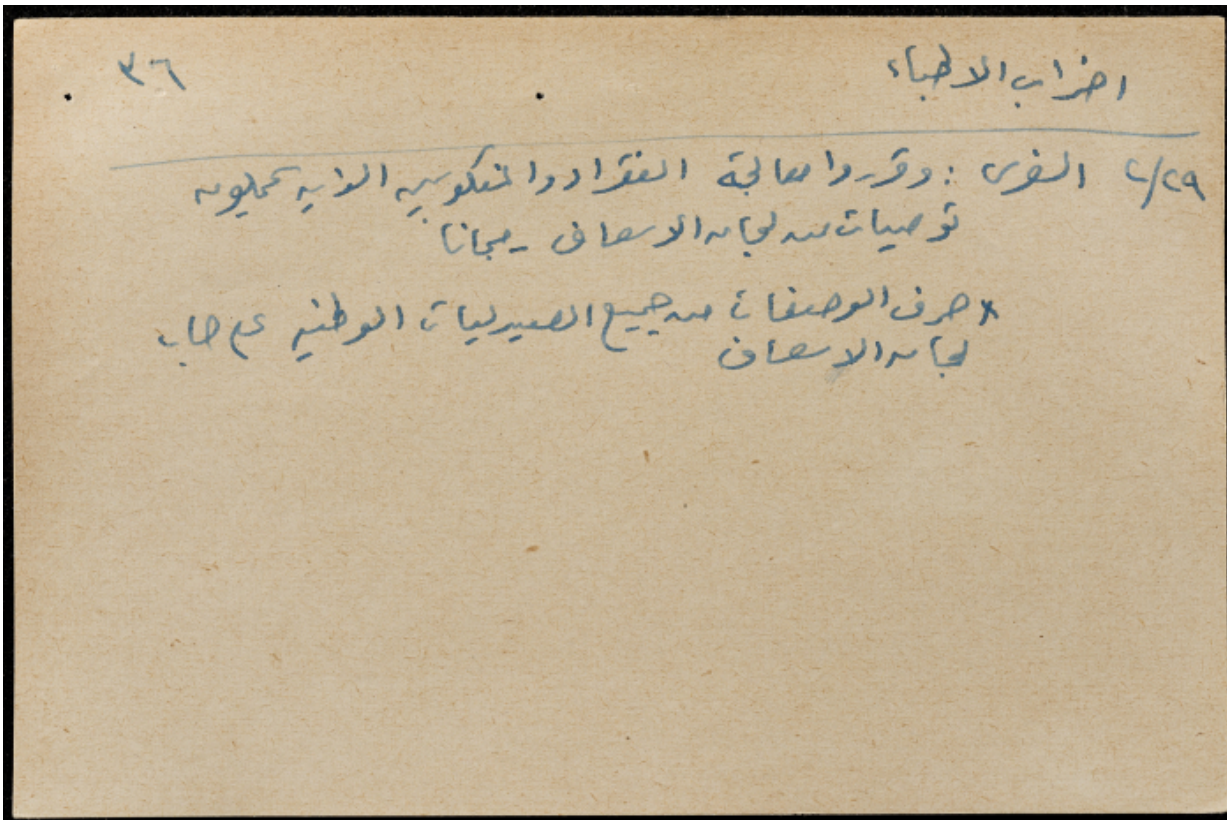 اضراب الاطباء ٣٦
٦/٢٩ السفرى : وقرروا معالجة الفقراء والمنكوبين الذين يحملون
توصيات من لجان الاسعاف - مجانا
* صرف الوصفات من جميع الصيدليات الوطنيه على حساب
لجان الاسعاف